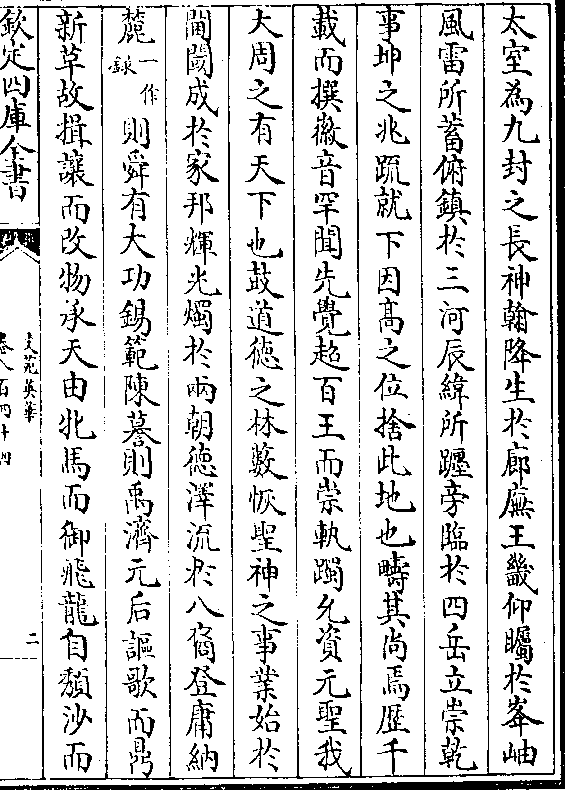 太室為九封之長神翰降生於廊廡王畿仰矚於峯岫
風雷所蓄俯鎮於三河辰緯所躔旁臨於四岳立崇乾
事坤之兆䟽就下因髙之位捨此地也疇其尚焉歴千
載而撰徽音罕聞先覺超百王而崇軌躅允資元聖我
大周之有天下也鼓道徳之林薮恢聖神之事業始於
閫閾成於家邦輝光燭於兩朝徳澤流於八裔登庸納
麓一作錄則舜有大功錫範陳謩則禹濟元后謳歌而鼎
新草故揖讓而改物承天由牝馬而御飛龍自頽沙而
欽定四庫全書
文苑英華
卷八百四十四
二